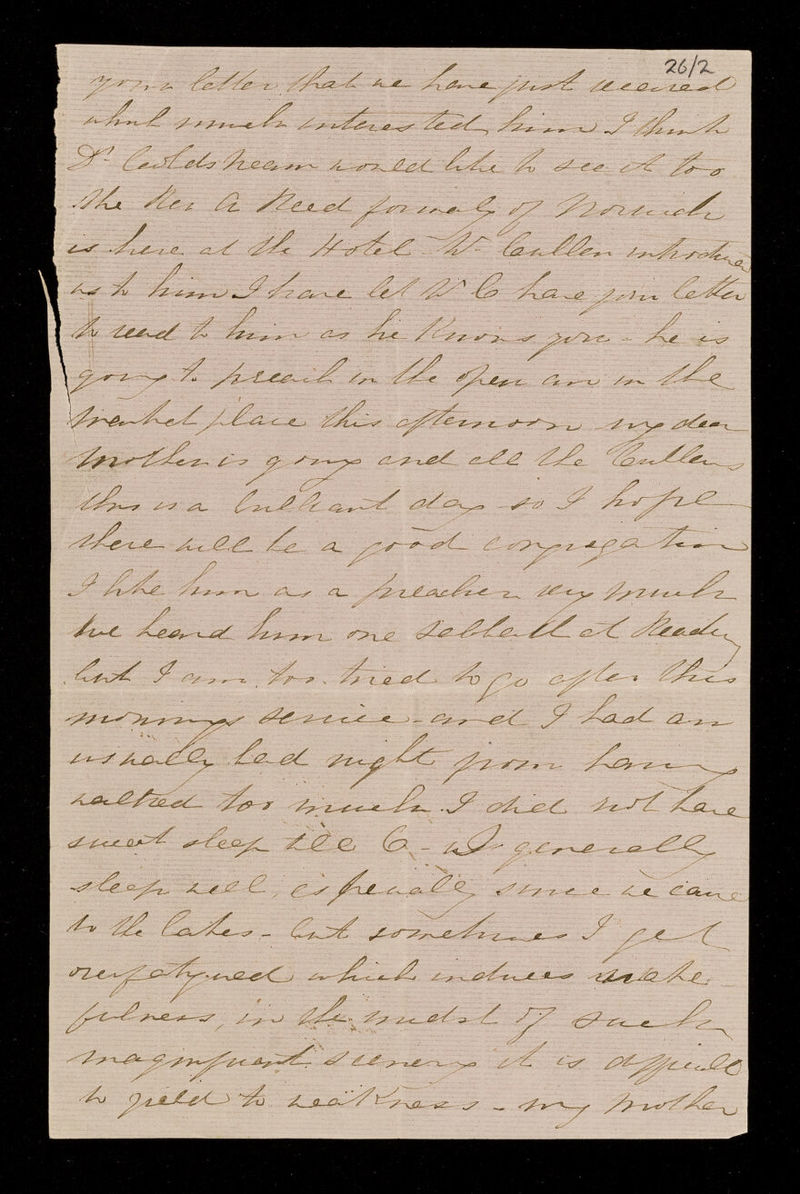 26/2
your letter that we have just received
which much interested him I think
Dr. Coldstream would like to see it too
the Rev A Reed formaly of Norwich
is here at the Hotel Dr Cullen introduced
us to him I have let Dr C have your letter
to read to him as he knows you - he is
going to preach in the open air in the
market place this afternoon my dear
Mother is going and all the Cullens
this is a brilliant day so I hope
there will be a good congregation
I like him as a preacher very much
we heard him one Sabbath at Reading
but I am too tired to go after this
mornings service - and I had an
usually bad night from having
walked too much I did not have
sweet sleep till 6 - I generally
sleep well, especially since we came
to the lakes - but sometimes I get
overfatigued which induces wake-
fulness, in the midst of such
magnificent scenery it is difficult
to yield to weakness - my Mother